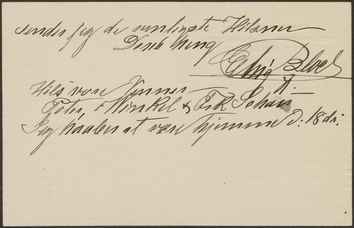 sender jeg de venligste Hilsner
Deres Meng
Edvig Bloch
Hils vore Venner
Winkel & Frk Schou
Jeg haaber at være hjemme D: 18 ds.